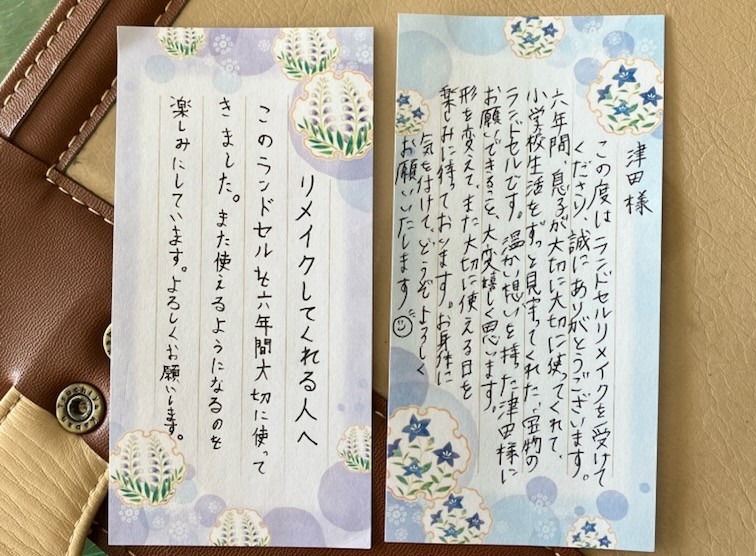 津田様
この度はランドセルリメイクを受けて
くださり、誠にありがとうございます。
六年間、息子が大切に大切に使ってくれて、
小学校生活をずっと見守ってくれた、宝物の
ランドセルです。温かい想いを持った津田様に
お願いできること、大変嬉しく思います。
形を変えて、また大切に使える日を
楽しみに待っております。お身体に
気を付けて、どうぞよろしく
お願いいたします
リメイクしてくれる人へ
このランドセルを六年間大切に使って
きました。また使えるようになるのを
楽しみにしています。よろしくお願いします。